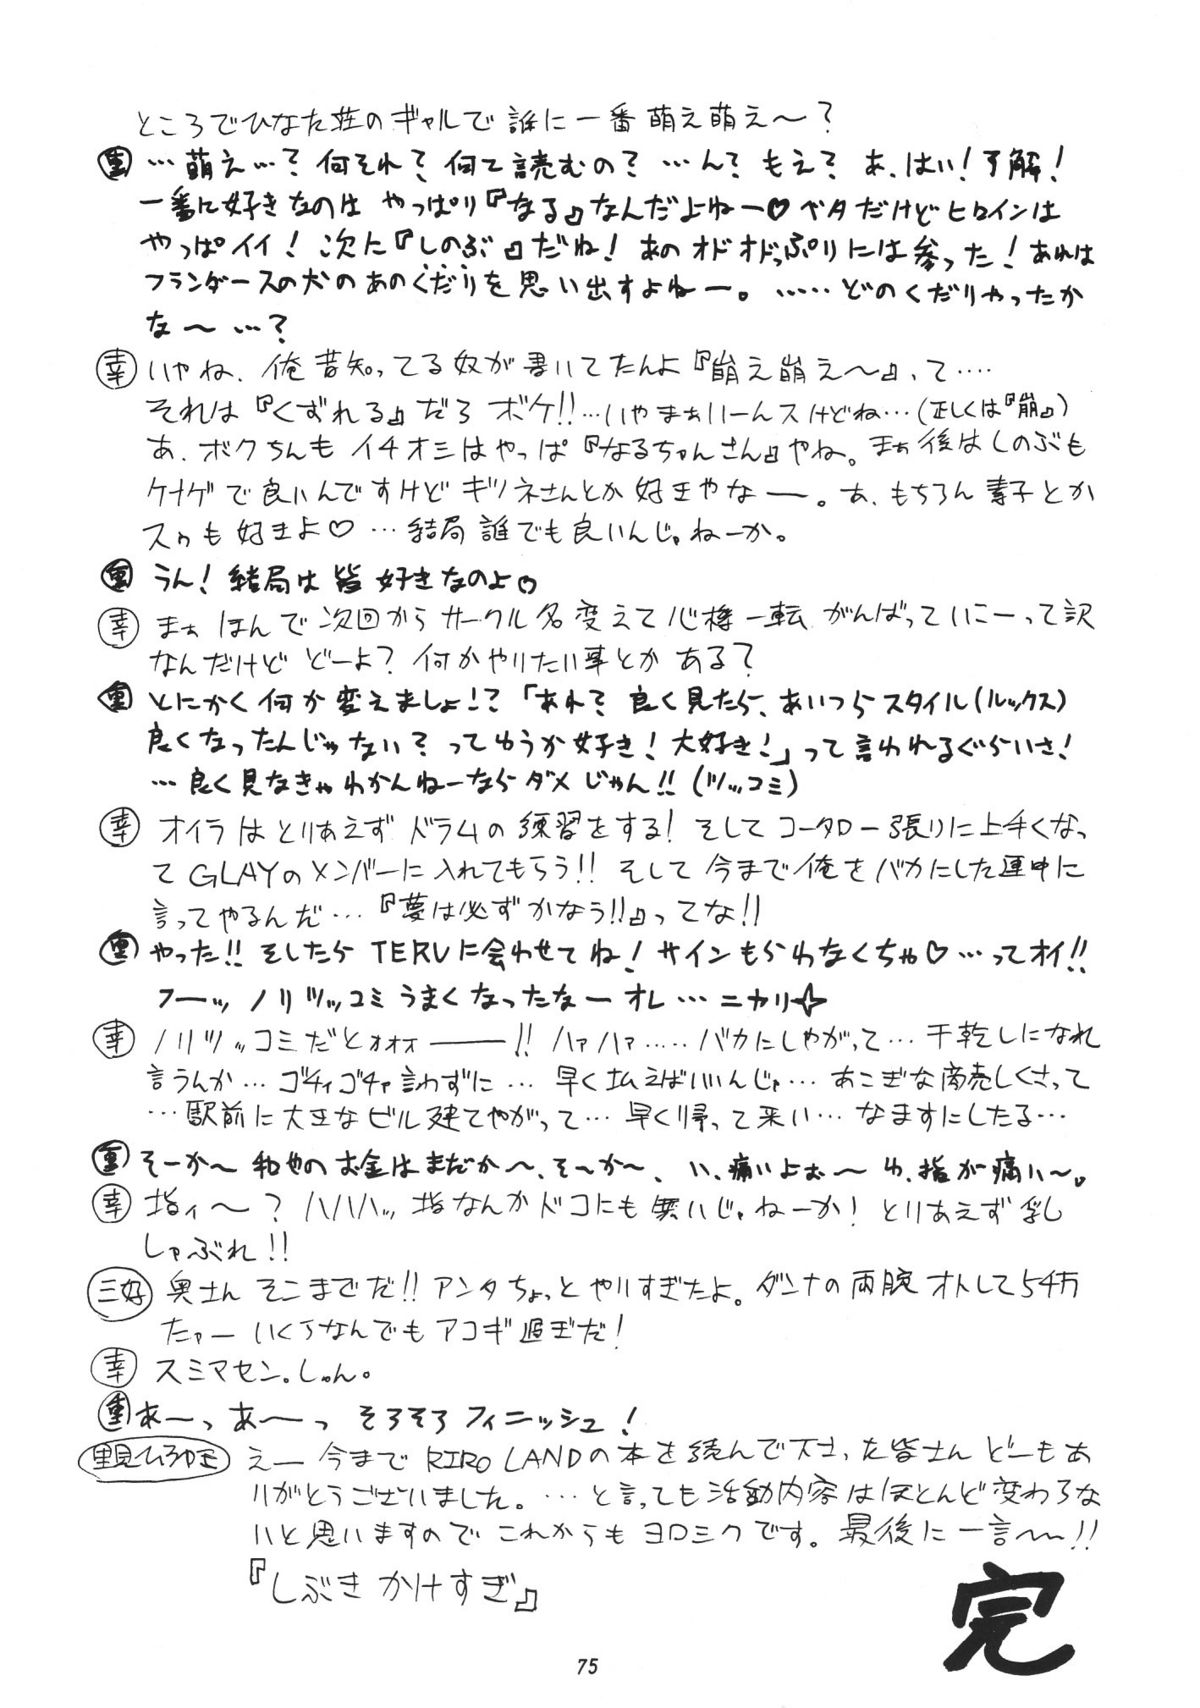 ところでひなた荘のギャルで誰に一番萌え萌え〜?
…萌え…?何それ?何て読むの?…ん?もえ?あ、はい!了解!
一番に好きなのはやっぱり『なる』なんだよねー♡ベタだけどヒロインは
やっぱイイ!次に『しのぶ』だね!あのオドオドっぷりには参った!あれは
フランダースの犬のあのくだりを思い出すよねー。……どのくだりやったか
な〜…?
幸 いやね、俺昔知ってる奴が書いてたんよ『崩え崩え〜』、て‥‥
それは『くずれる』だろボケ!!…いやまぁいーんスけどね…(正しくは『崩』)
あ、ボクちんもイチオシはやっぱ『なるちゃんさん』やね。まぁ後はしのぶも
ケナゲで良いんですけどキツネさんとか好きやなー。あ、もちろん素子とか
スゥも好きよ♡…結局誰でも良いんじゃねーか。
うん!結局は皆好きなのよ♡
幸 まぁほんで次回からサークル名変えて心機一転がんばっていこーって訳
なんだけどどーよ?何かやりたい事とかある?
とにかく何か変えましょ!?「あれ?良く見たら、あいつらスタイル(ルックス)
良くなったんじゃない?ってゆうか好き!大好き!」って言われるぐらいさ!
…良く見なきゃわかんねーならダメじゃん!!(ツッコミ)
幸 オイラはとりあえずドラムの練習をする!そしてコータロー張りに上手くなっ
てGLAYのメンバーに入れてもらう!!そして今まで俺をバカにした連中に
言ってやるんだ…『夢は必ずかなう!!』ってな!!
やった!!そしたらTERUに会わせてね!サインもらわなくちゃ♡…ってオイ!!
フーッノリツッコミうまくなったなーオレ…ニカリ☆
幸 ノリツッコミだとォォォ――!!ハァハァ……バカにしやがって…干乾しになれ
言うんか…ゴチャゴチャ言わずに…早く払えばいいんじゃ…あこぎな商売しくさって
…駅前に大きなビル建てやがって…早く帰って来い…なますにしたる…
そーか〜和也のお金はまだか〜、そ〜か〜、い、痛いよぉ〜ゆ、指が痛い〜。
幸 指ィ〜?ハハハッ、指なんかドコにも無いじゃねーか!とりあえず乳
しゃぶれ!!
三好 奥さんそこまでだ!!アンタちょっとやりすぎたよ。ダンナの両腕オトして5千万
たァーいくらなんでもアコギ過ぎだ!
幸 スミマセン。しゅん。
あーっあ〜っそろそろフィニッシュ!
里見ひろゆき えー今までRIRO LANDの本を読んで下さった皆さんどーもあ
りがとうございました。…と言っても活動内容はほとんど変わらな
いと思いますのでこれからもヨロシクです。最後に一言〜!!
『しぶきかけすぎ』
完
75